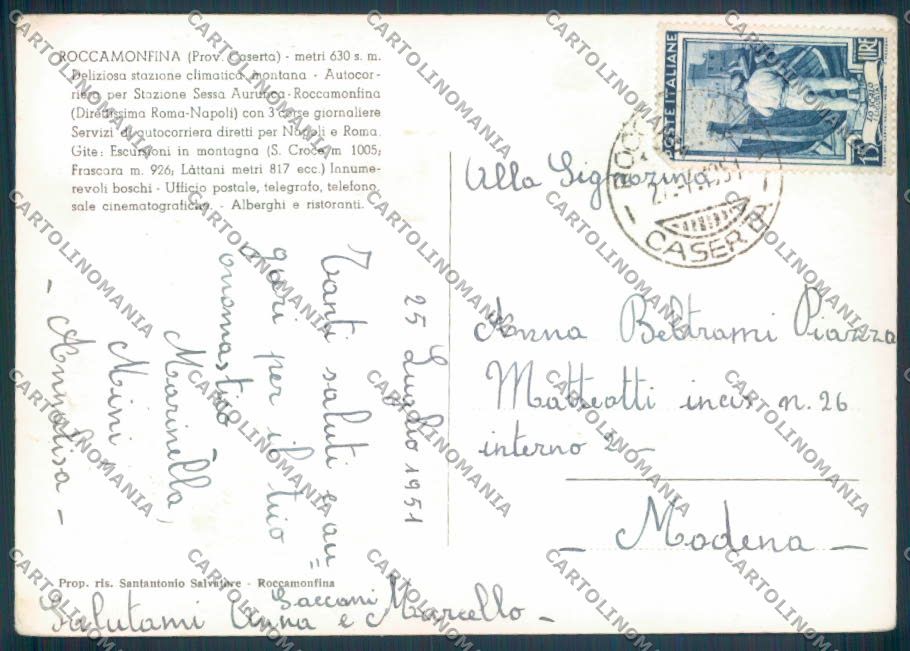 ROCCAMONFINA (Prov. Caserta) - metri 630 s. m.
Deliziosa stazione climatica montana - Autocor-
riera per Stazione Sessa Aurunca - Roccamonfina
(Direttissima Roma-Napoli) con 3 corse giornaliere
Servizi di autocorriera diretti per Napoli e Roma.
Gite: Escursioni in montagna (S. Croce m 1005;
Frascara m. 926; Làttani metri 817 ecc.) Innume-
revoli boschi - Ufficio postale, telegrafo, telefono,
sale cinematografiche. - Alberghi e ristoranti.
POSTE ITALIANE
LIRE
15
CASERTA
Alla Signorina
Anna Beltrami Piazza
Matteotti incis n. 26
interno 2 -
- Modena -
25 Luglio 1951
Tanti saluti e au=
guri per il tuo
onomastico
Marinella,
Mimi
- Annalisa -
Prop. ris. Santantonio Salvatore - Roccamonfina
Saccani
Salutami Anna e Marcello -
CARTOLINOMANIA